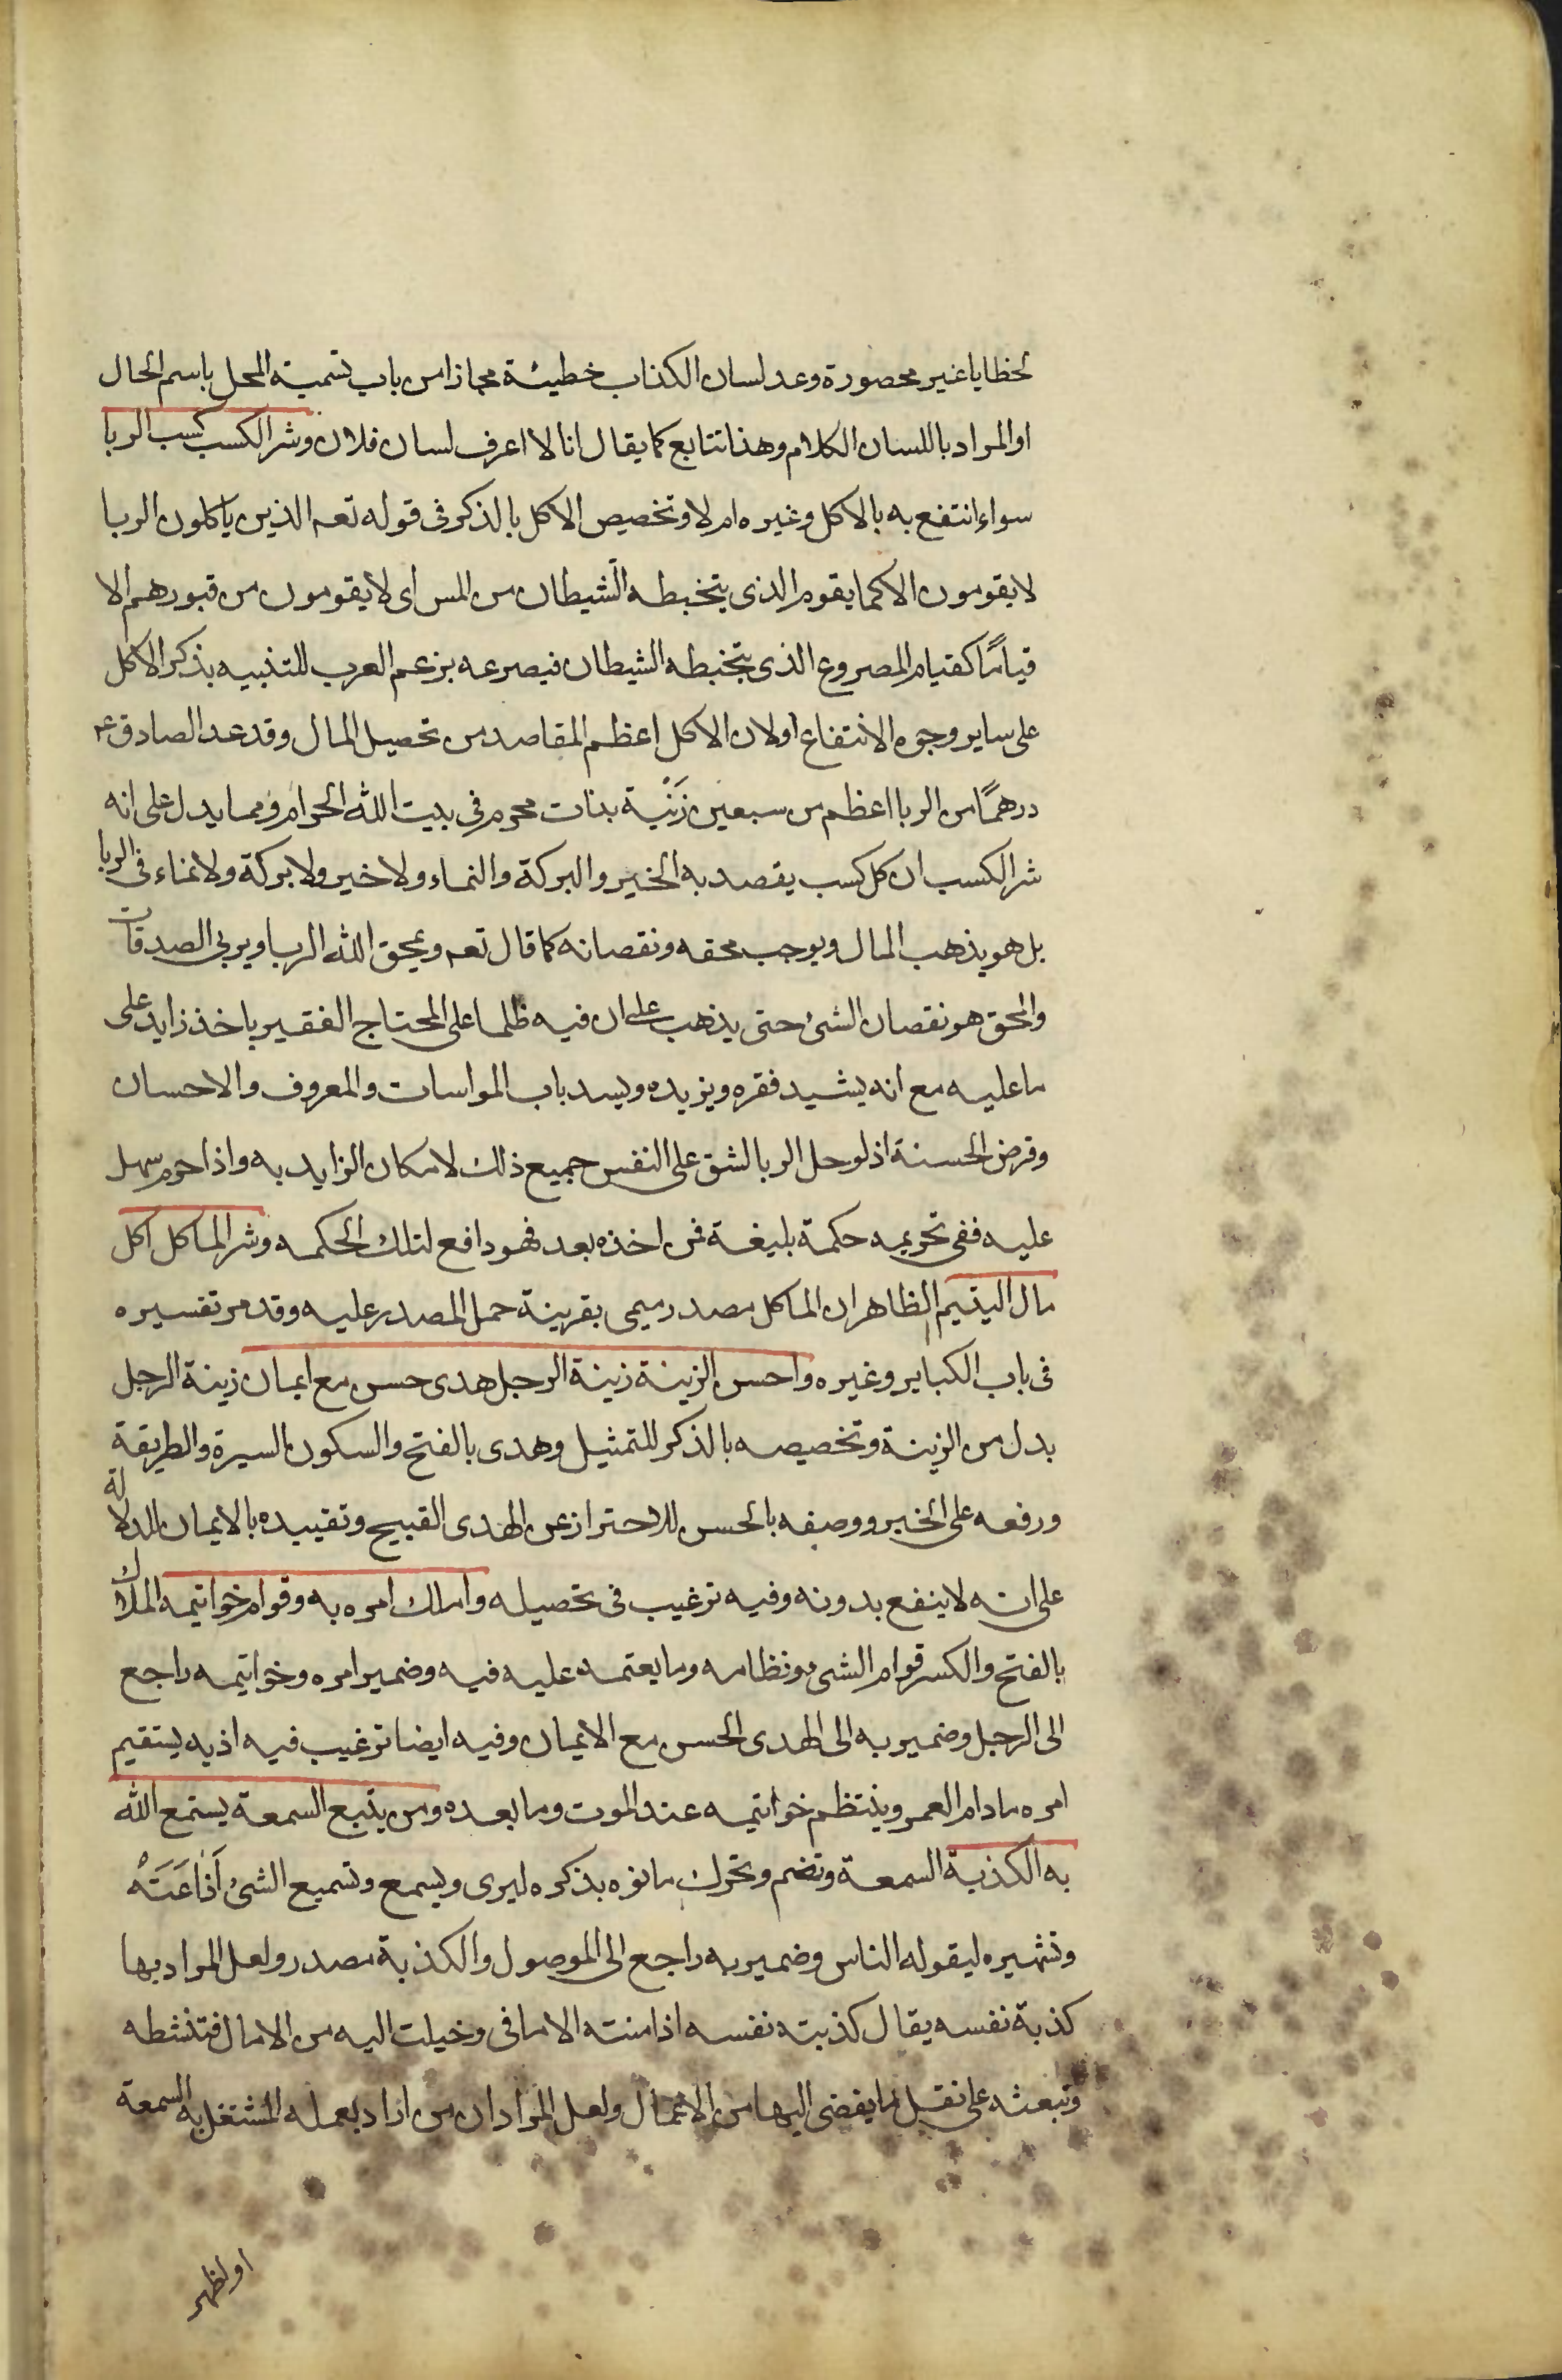 لخطايا غير محصورة وعد لسان الكذاب خطيئة مجازا من باب تسمية المحل باسم الحال
او المراد باللسان الكلام وهذا تتابع كما يقال انا لا اعرف لسان فلان وشر الكسب كسب الربا
سواء انتفع به بالاكل وغيره ام لا وتخصيص الاكل بالذكر فى قوله تعم الذين ياكلون الربا
لا يقومون الا كما يقوم الذى يتخبطه الشيطان من المس اى لا يقومون من قبورهم الا
قيامًا كقيام المصروع الذى يتخبطه الشيطان فيصرعه بزعم العرب للتنبيه بذكر الاكل
على ساير وجوه الانتفاع او لان الاكل اعظم المقاصد من تحصيل المال وقد عد الصادق ع
درهمًا من الربا اعظم من سبعين زَنْيَة بذات محرم فى بيت الله الحرام ومما يدل على انه
شر الكسب ان كل كسب يقصد به الخير والبركة والنماء ولا خير ولا بركة ولا نماء فى الربا
بل هو يذهب المال ويوجب محقه ونقصانه كما قال تعم ويمحق الله الربا ويربى الصدقات
والمحق هو نقصان الشئ حتى يذهب على ان فيه ظلما على المحتاج الفقير ياخذ زايد على
ما عليه مع انه يشيد فقره ويزيده ويسد باب المواسات والمعروف والاحسان
وقرض الحسنة اذ لو حل الربا لشق على النفس جميع ذلك لامكان الزايد به واذا حرم سهل
عليه ففى تحريمه حكمة بليغة فمن اخذه بعد فهو دافع لتلك الحكمه وشر الماكل اكل
مال اليتيم الظاهر ان الماكل مصدر ميمى بقرينة حمل المصدر عليه وقد مر تفسيره
فى باب الكباير وغيره واحسن الزينة زينة الرجل هدى حسن مع ايمان زينة الرجل
بدل من الزينة وتخصيصه بالذكر للتمثيل وهدى بالفتح والسكون السيرة والطريقة
ورفعه على الخبر ووصفه بالحسن للاحتراز عن الهدى القبيح وتقييده بالايمان للدلالة
على انه لا ينفع بدونه وفيه ترغيب فى تحصيله واملك امره به وقوام خواتيمه الملاك
بالفتح والكسر قوام الشئ ونظامه وما يعتمد عليه فيه وضمير امره وخواتيمه راجع
الى الرجل وضمير به الى الهدى الحسن مع الايمان وفيه ايضا ترغيب فيه اذ به يستقيم
امره مادام العمر وينتظم خواتيمه عند الموت وما بعده ومن يتبع السمعة يستمع الله
به الكذبة السمعة وتضم وتحرك ما نوه بذكره ليرى ويسمع وتسميع الشئ اَذاعَتَهُ
وتشهيره ليقوله الناس وضمير به راجع الى الموصول والكذبة مصدر ولعل المراد بها
كذبة نفسه يقال كذبته نفسه اذا منته الامانى وخيلت اليه من الامال فتنشطه
وتبعثه على نقل ما يفضى اليها من الاعمال ولعل المراد ان من اراد بعمله المشتغل به السمعة
او لظهر